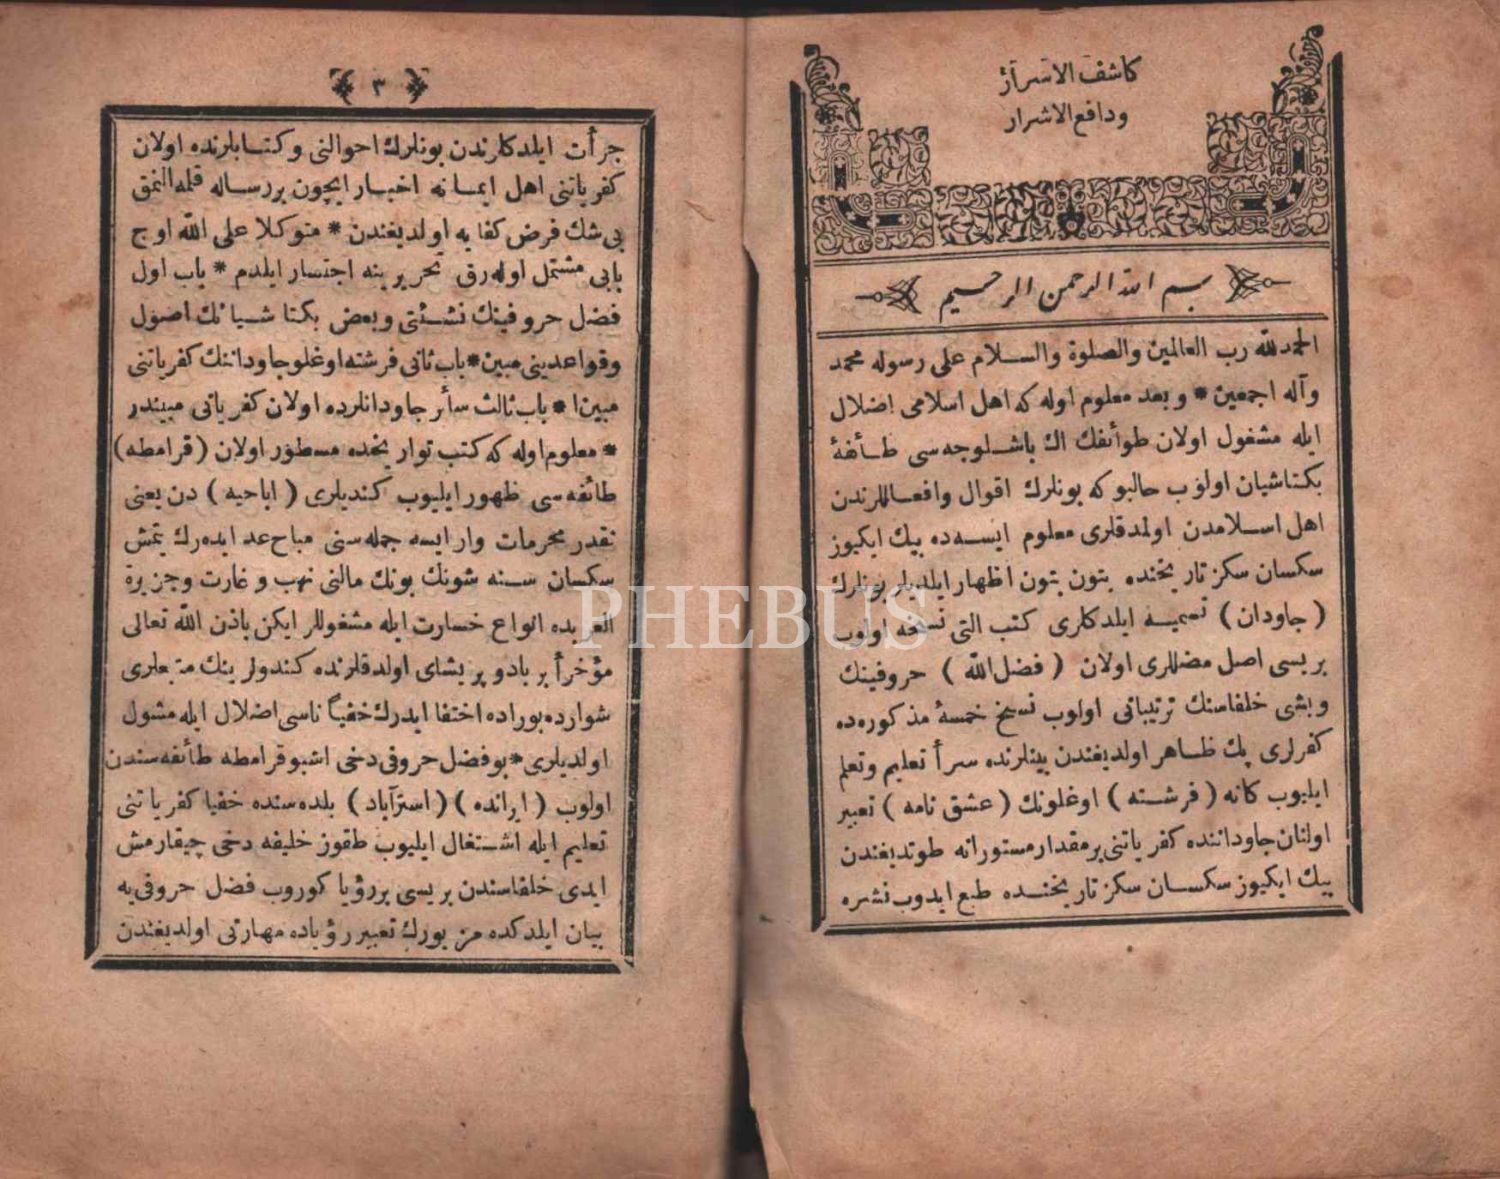 كاشف الاسرار
ودافع الاشرار
بسم الله الرحمن الرحيم
الحمد لله رب العالمين والصلوة والسلام على رسوله محمد
وآله اجمعين * وبعد معلوم اوله كه اهل اسلامى اضلال
ايله مشغول اولان طوائفك اك باشلوجه سى طائفۀ
بكتاشيان اولوب حالبوكه بونلرك اقوال وافعاللرندن
اهل اسلامدن اولمدقلرى معلوم ايسه ده بيك ايكيوز
سكسان سكز تاريخنده بتون بتون اظهار ايلديلر بونلرك
(جاودان) تسميه ايلدكلرى كتب التى نسخه اولوب
بريسى اصل مضللرى اولان (فضل الله) حروفينك
وبشى خلفاسنك ترتيباتى اولوب نسخ خمسۀ مذكوره ده
كفرلرى پك ظاهر اولديغندن بينلرنده سراً تعليم وتعلم
ايليوب كانه (فرشته) اوغلونك (عشق نامه) تعبير
اولنان جاوداننده كفرياتنى بر مقدار مستورانه طوتديغندن
بيك ايكيوز سكسان سكز تاريخنده طبع ايدوب نشره
٣
جرأت ايلدكلرندن بونلرك احوالنى وكتابلرنده اولان
كفرياتنى اهل ايمانه اخبار ايچون بر رساله قلمه النمق
بى شك فرض كفايه اولديغندن * متوكلا على الله اوج
بابى مشتمل اوله رق تحريرينه اجتسار ايلدم * باب اول
فضل حروفينك نشئتى وبعض بكتاشيانك اصول
وقواعدينى مبين * باب ثانى فرشته اوغلو جاوداننك كفرياتنى
مبين ا * باب ثالث سائر جاودانلرده اولان كفرياتى مبيندر
* معلوم اوله كه كتب تواريخده مسطور اولان (قرامطه)
طائفه سى ظهور ايليوب كنديلرى (اباحيه) دن يعنى
نقدر محرمات وار ايسه جمله سنى مباح عد ايده رك يتمش
سكسان سنه شونك بونك مالنى نهب وغارت وجزيرة
العربده انواع خسارت ايله مشغوللر ايكن باذن الله تعالى
مؤخراً بر باد و پريشان اولدقلرنده كندولرينك متبعلرى
شوراده بوراده اختفا ايدرك خفياً ناسى اضلال ايله مشول
اولديلرى * بو فضل حروفى دخى اشبو قرامطه طائفه سندن
اولوب (ايرانده) (استرآباد) بلده سنده خفيا كفرياتنى
تعليم ايله اشتغال ايليوب طقوز خليفه دخى چيقارمش
ايدى خلفاسندن بريسى بر رؤيا كوروب فضل حروفى يه
بيان ايلدكده مزبورك تعبير رؤياده مهارتى اولديغندن
PHEBUS